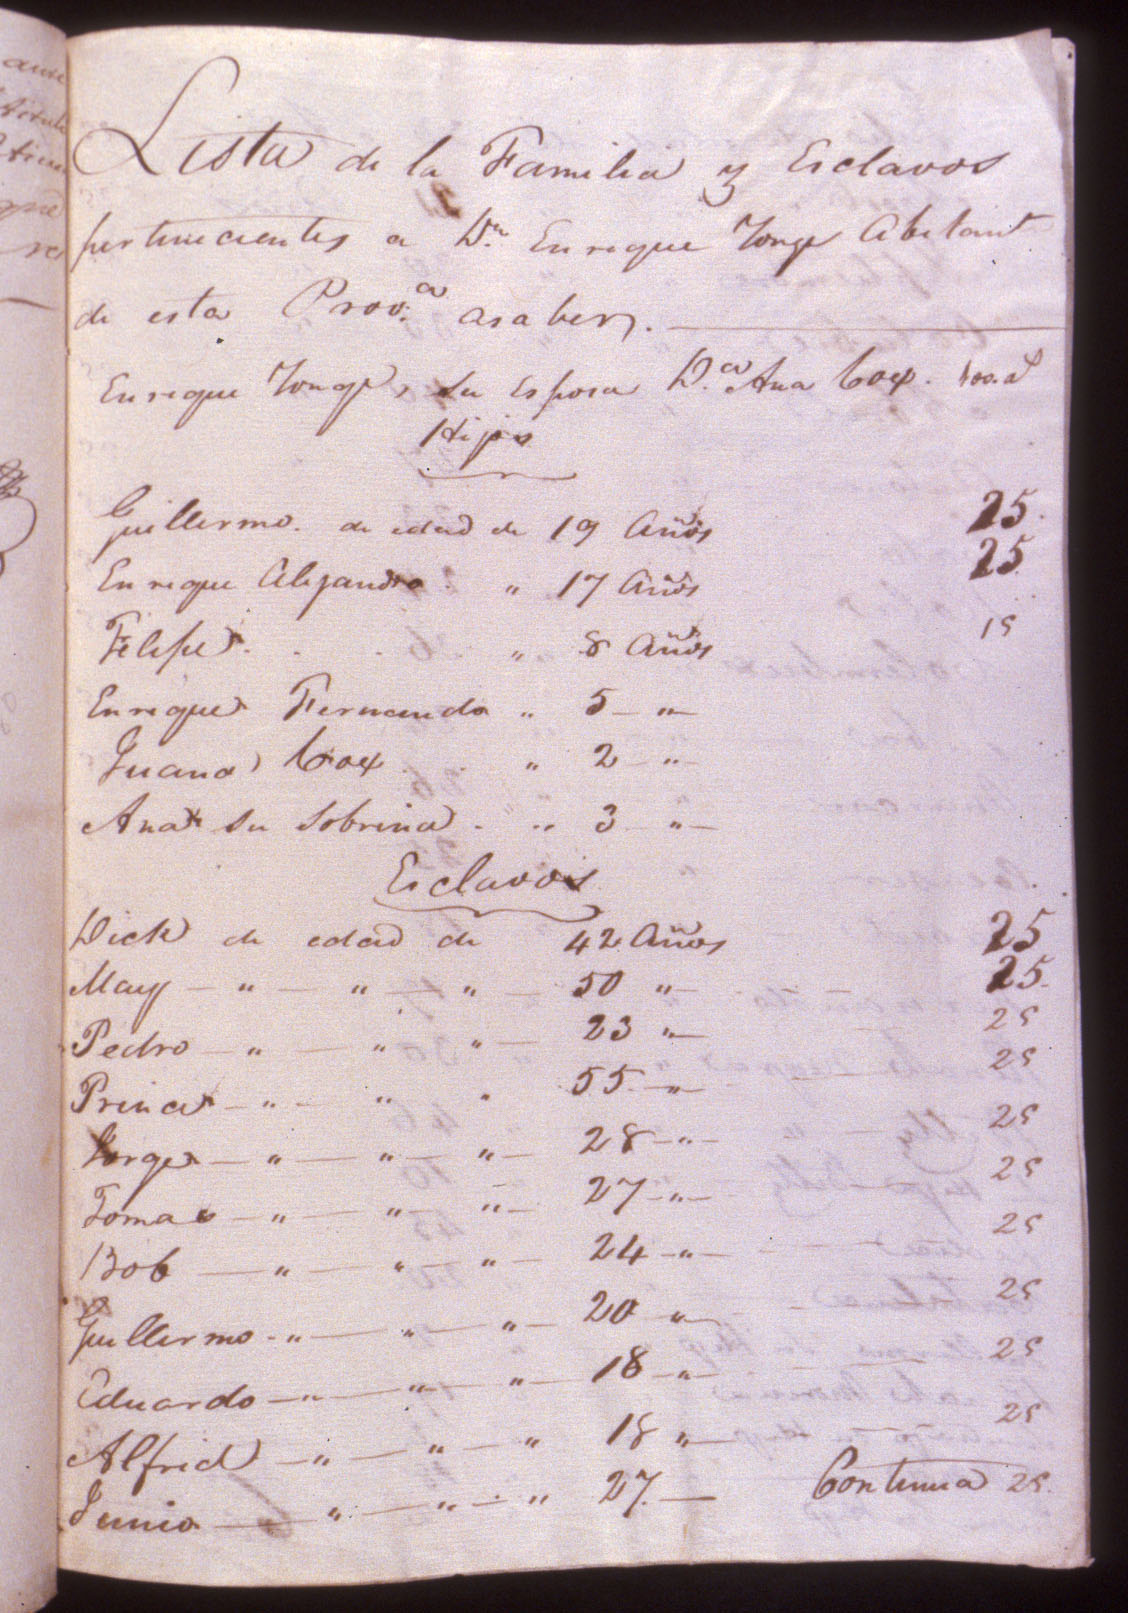 Lista de la Familia y Esclavos
pertenecientes a Dn Enrique Yonge Abitant
de esta Prova asaber.
Enrique Yonge, su Esposa Da Ana Cox. 100.a
Hijos
Guillermo. de edad de 19 Años 25.
Enrique Alejandro. " 17 Años 25
Felipe. . . " 8 Años 15
Enrique Fernando " 5 - "
Juana Cox . . " 2 - "
Ana su Sobrina . " 3 - "
Esclavos
Dick de edad de 42 Años 25
Mary - " - " - " - 50 " 25.
Pedro - " - " " - 23 " 25
Prince - " - " " 55 - " 25
Jorge - " - " - " - 28 - " - 25
Tomas - " - " - " - 27 - " - 25
Bob - " - " - " - 24 - " - 25
Guillermo - " - " - " - 20 " 25
Eduardo - " - " - " - 18 - " 25
Alfrid - " - " - " 18 " - 25
Junio - " - " - " 27. - Continua 25.